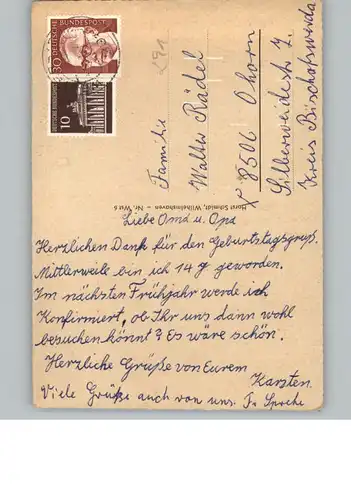 DEUTSCHE BUNDESPOST
30
DEUTSCHE BUNDESPOST
10
Familie
Walter Rädel
x 8506 Ohorn
Silberweidestr. 7
Kreis Bischofswerda
Horst Schmidt, Wilhelmshaven – Nr. Wst 6
Liebe Oma u. Opa
Herzlichen Dank für den Geburtstagsgruß.
Mittlerweile bin ich 14 J geworden.
Im nächsten Frühjahr werde ich
Konfirmiert, ob Ihr uns dann wohl
besuchen könnt? Es wäre schön.
Herzliche Grüße von Eurem
Karsten.
Viele Grüße auch von uns. Fa